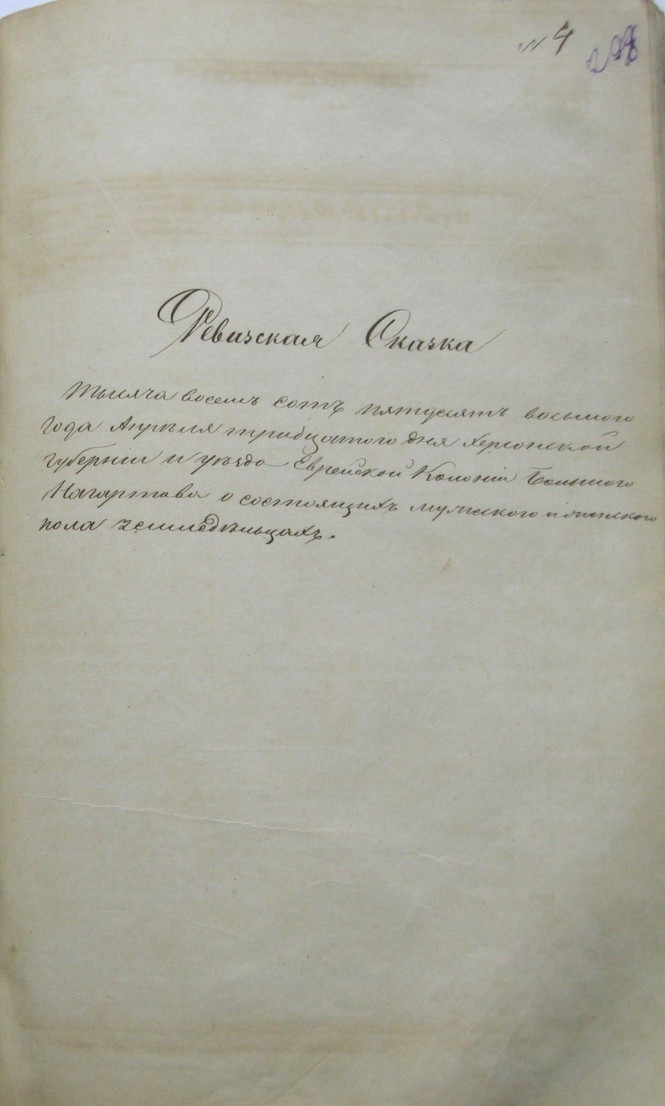 № 4
Ревизская Сказка
Тысяча восемь сотъ пятдесятъ восьмого
года Апрѣля тридцатого дня Херсонской
губерніи и уѣзда Еврейской Колоніи Большого
Нагартова о состоящихъ мужеского и женского
пола земледѣльцахъ.